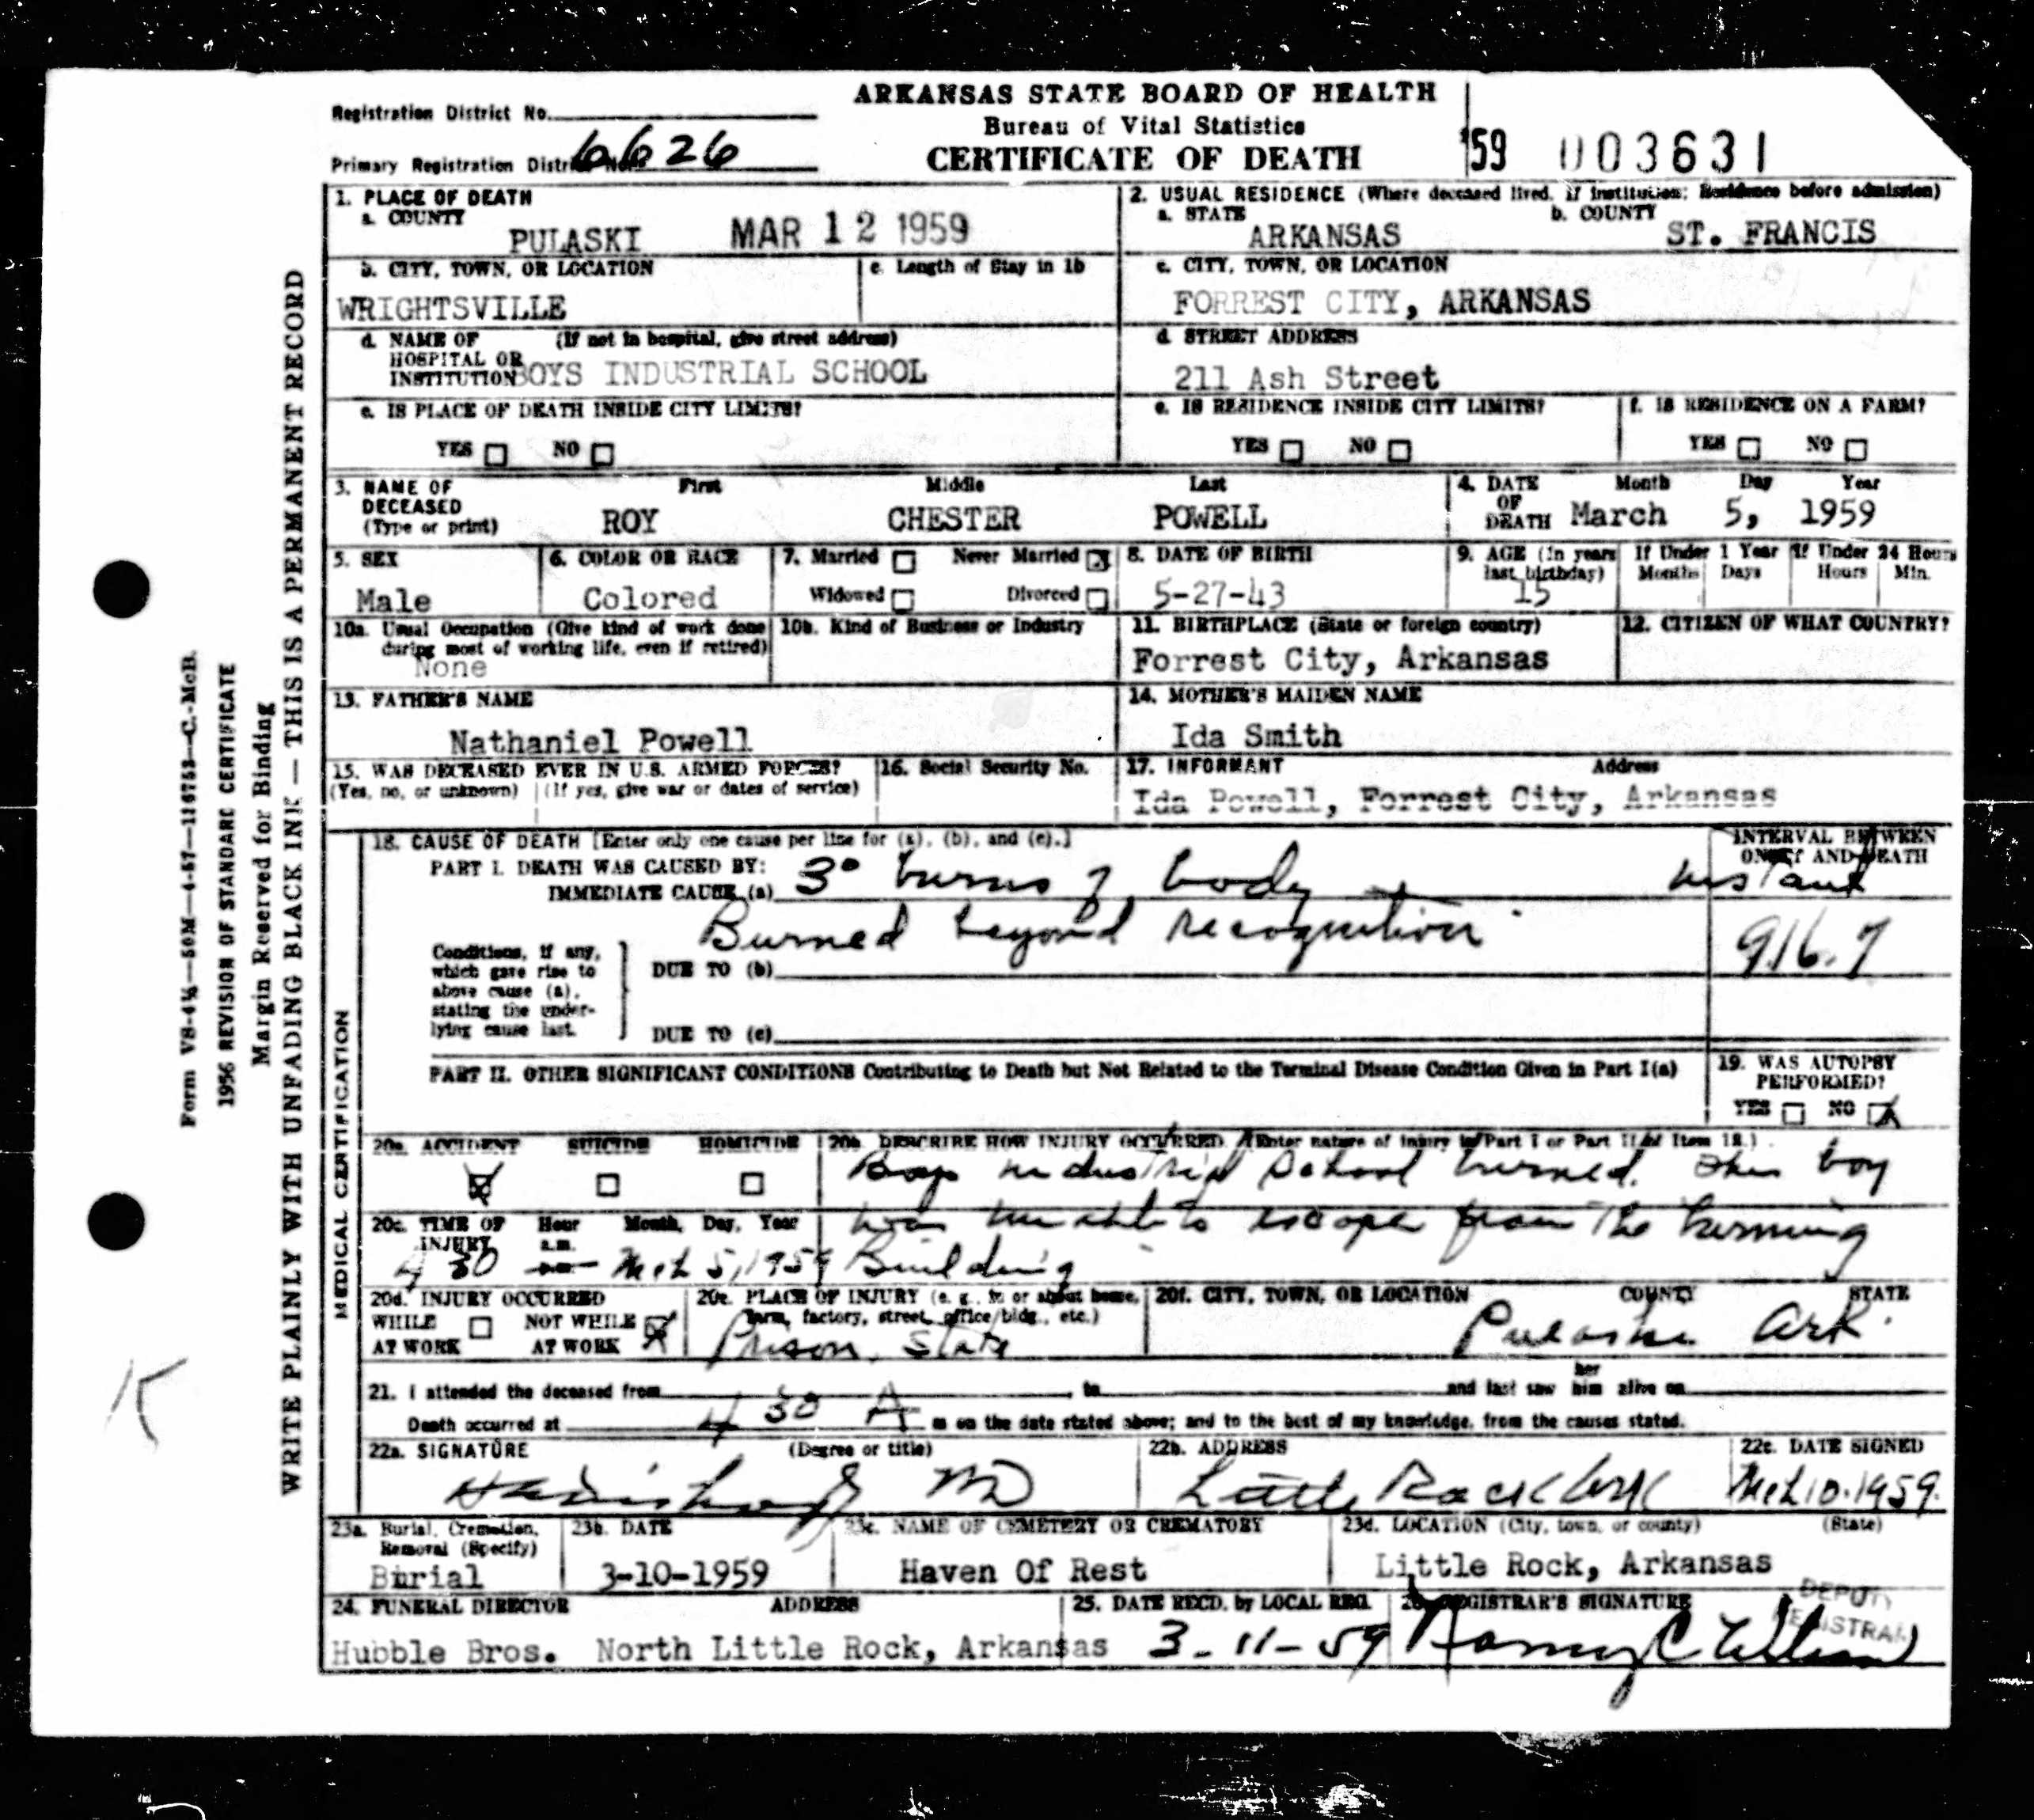 ARKANSAS STATE BOARD OF HEALTH
Bureau of Vital Statistics
CERTIFICATE OF DEATH
Registration District No.
Primary Registration District No. 6626
'59 003631
1. PLACE OF DEATH
a. COUNTY
PULASKI MAR 12 1959
2. USUAL RESIDENCE (Where deceased lived. If institution; Residence before admission)
a. STATE b. COUNTY
ARKANSAS ST. FRANCIS
b. CITY, TOWN, OR LOCATION
c. Length of Stay in 1b
WRIGHTSVILLE
c. CITY, TOWN, OR LOCATION
FORREST CITY, ARKANSAS
d. NAME OF HOSPITAL OR INSTITUTION (If not in hospital, give street address)
BOYS INDUSTRIAL SCHOOL
d. STREET ADDRESS
211 Ash Street
e. IS PLACE OF DEATH INSIDE CITY LIMITS?
YES NO
e. IS RESIDENCE INSIDE CITY LIMITS?
YES NO
f. IS RESIDENCE ON A FARM?
YES NO
3. NAME OF DECEASED (Type or print)
First Middle Last
ROY CHESTER POWELL
4. DATE OF DEATH
Month Day Year
March 5, 1959
5. SEX
Male
6. COLOR OR RACE
Colored
7. Married Never Married
Widowed Divorced
8. DATE OF BIRTH
5-27-43
9. AGE (In years last birthday)
15
If Under 1 Year
Months Days
If Under 24 Hours
Hours Min.
10a. Usual Occupation (Give kind of work done during most of working life, even if retired)
None
10b. Kind of Business or Industry
11. BIRTHPLACE (State or foreign country)
Forrest City, Arkansas
12. CITIZEN OF WHAT COUNTRY?
13. FATHER'S NAME
Nathaniel Powell
14. MOTHER'S MAIDEN NAME
Ida Smith
15. WAS DECEASED EVER IN U.S. ARMED FORCES?
(Yes, no, or unknown) (If yes, give war or dates of service)
16. Social Security No.
17. INFORMANT Address
Ida Powell, Forrest City, Arkansas
MEDICAL CERTIFICATION
18. CAUSE OF DEATH [Enter only one cause per line for (a), (b), and (c).]
PART I. DEATH WAS CAUSED BY:
IMMEDIATE CAUSE (a) 3° burns of body
Burned beyond recognition
INTERVAL BETWEEN ONSET AND DEATH
Instant
916.7
Conditions, if any,
which gave rise to
above cause (a),
stating the under-
lying cause last.
DUE TO (b)
DUE TO (c)
PART II. OTHER SIGNIFICANT CONDITIONS Contributing to Death but Not Related to the Terminal Disease Condition Given in Part I(a)
19. WAS AUTOPSY PERFORMED?
YES NO
20a. ACCIDENT SUICIDE HOMICIDE
20b. DESCRIBE HOW INJURY OCCURRED. (Enter nature of injury in Part I or Part II of Item 18.)
Boys industrial school burned. This boy
was unable to escape from the burning
Building
20c. TIME OF INJURY
Hour Month, Day, Year
a.m.
p.m.
4 30 Mch 5, 1959
20d. INJURY OCCURRED
WHILE AT WORK NOT WHILE AT WORK
20e. PLACE OF INJURY (e. g., in or about home, farm, factory, street, office bldg., etc.)
Prison, State
20f. CITY, TOWN, OR LOCATION COUNTY STATE
Pulaski Ark.
21. I attended the deceased from , to and last saw her him alive on
Death occurred at 4 30 A m on the date stated above; and to the best of my knowledge, from the causes stated.
22a. SIGNATURE (Degree or title)
MD
22b. ADDRESS
Little Rock Ark
22c. DATE SIGNED
Mch 10-1959.
23a. Burial, Cremation, Removal (Specify)
Burial
23b. DATE
3-10-1959
23c. NAME OF CEMETERY OR CREMATORY
Haven Of Rest
23d. LOCATION (City, town, or county) (State)
Little Rock, Arkansas
24. FUNERAL DIRECTOR ADDRESS
Hubble Bros. North Little Rock, Arkansas
25. DATE RECD. by LOCAL REG.
3-11-59
26. REGISTRAR'S SIGNATURE
DEPUTY
REGISTRAR
Form VS-4½—50M—4-57—116753—C.-McB.
1956 REVISION OF STANDARD CERTIFICATE
Margin Reserved for Binding
WRITE PLAINLY WITH UNFADING BLACK INK — THIS IS A PERMANENT RECORD